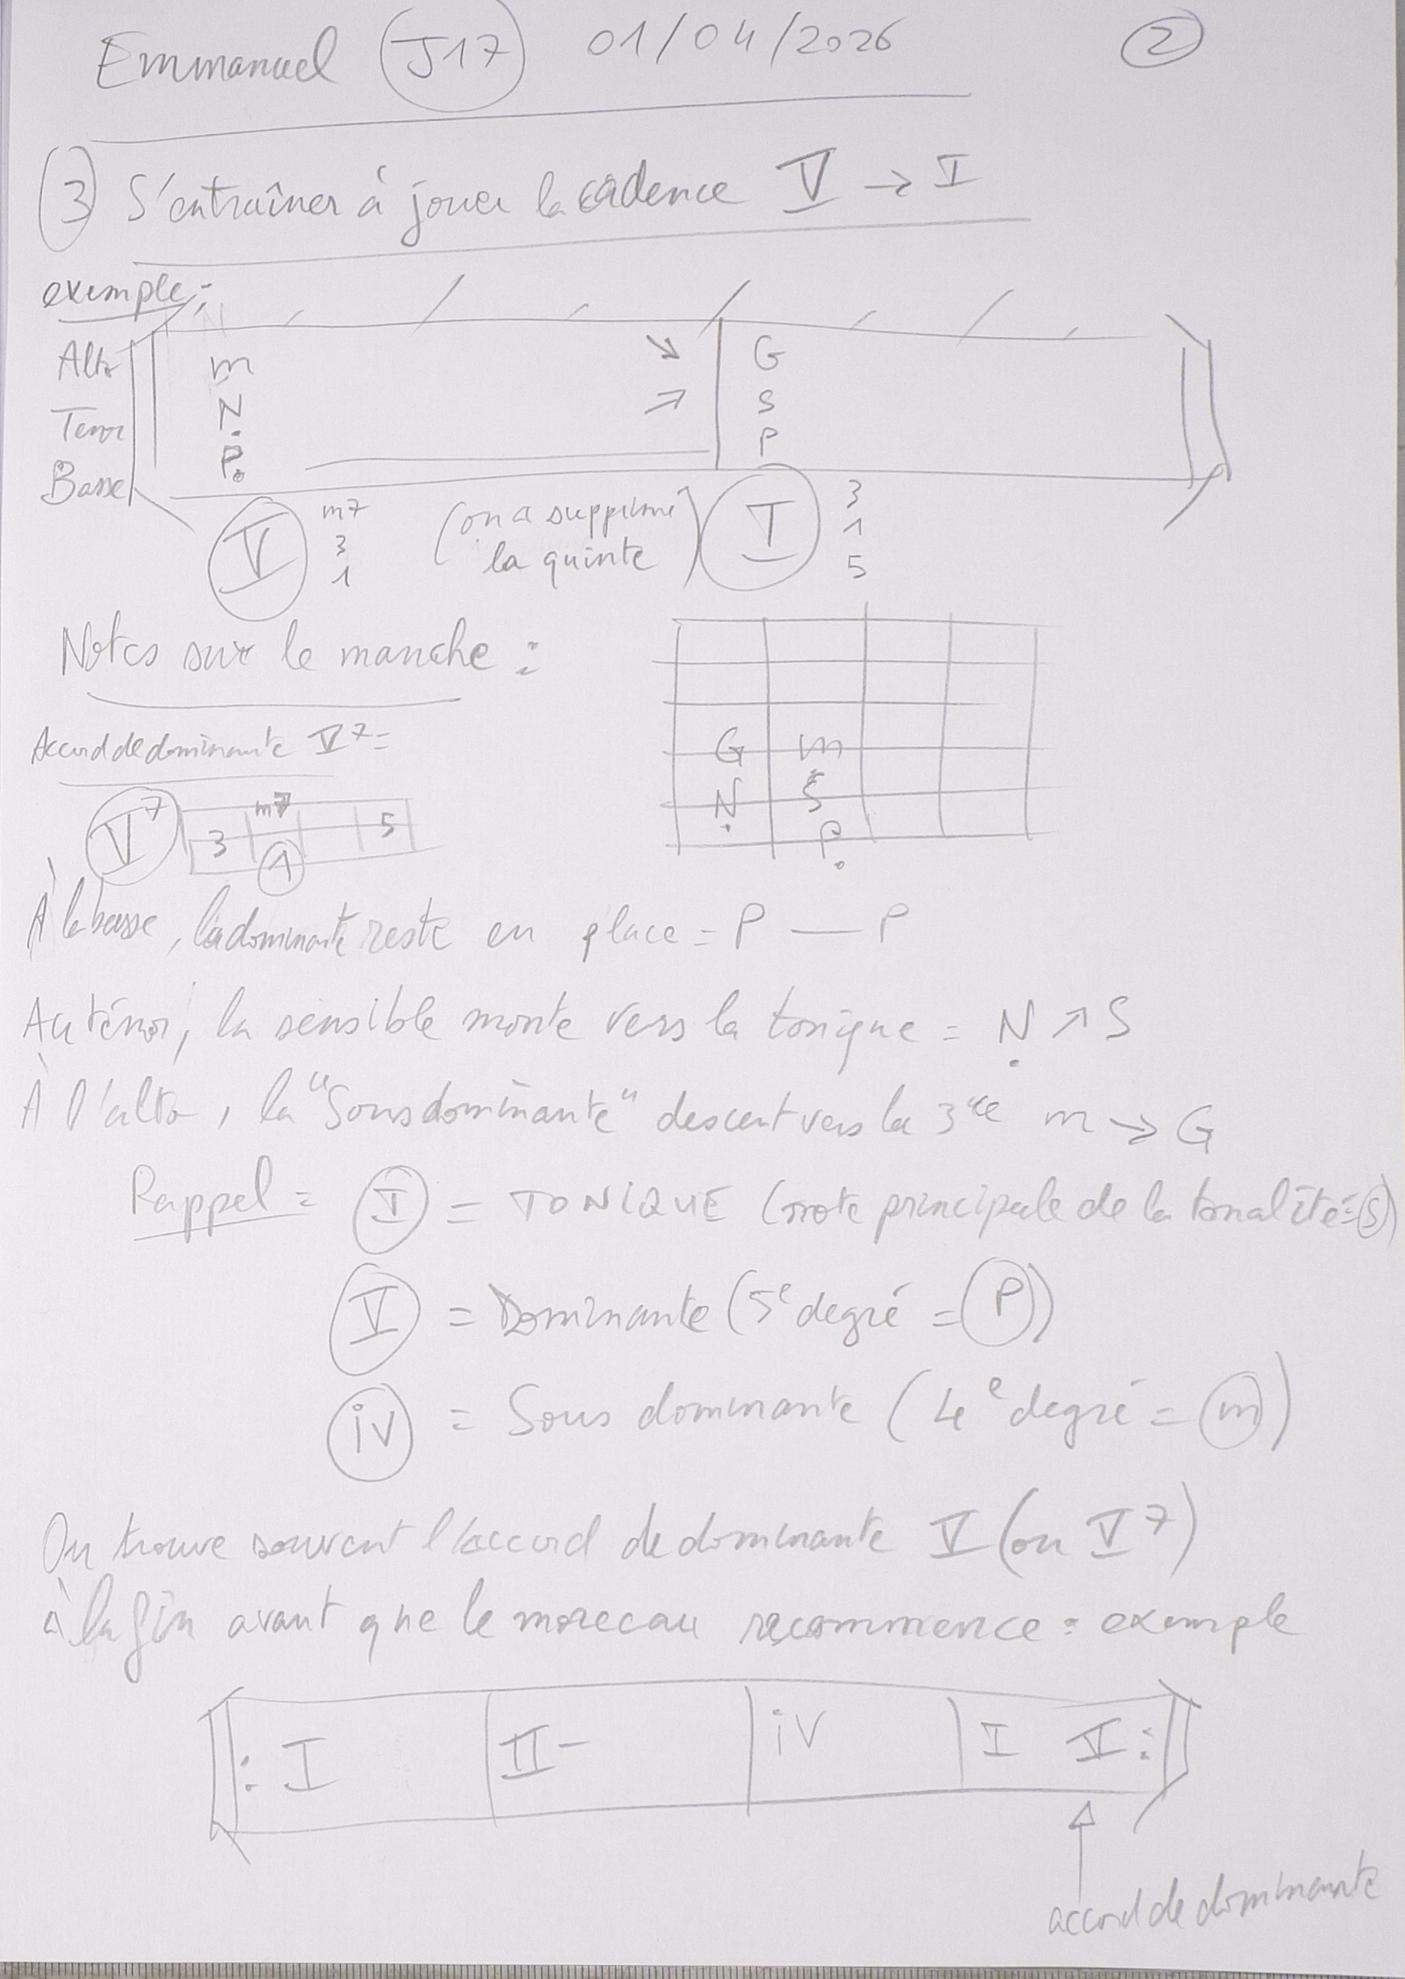 Emmanuel J17 01/04/2026 2
3 S'entraîner à jouer la cadence V → I
exemple :
Alto m ↘ G
Tenor Ṇ ↗ S
Basse P. P
V m7 3 1 (on a supprimé la quinte) I 3 1 5
Notes sur le manche :
Accord de dominante V7 =
G m
Ṇ S
P.
V7 3 m7 1 5
À la basse, la dominante reste en place = P — P
Au ténor, la sensible monte vers la tonique = Ṇ ↗ S
À l'alto, la "Sous dominante" descent vers la 3ce m → G
Rappel = I = TONIQUE (note principale de la tonalité = S)
V = Dominante (5e degré = P)
iv = Sous dominante (4e degré = m)
On trouve souvent l'accord de dominante V (ou V7)
à la fin avant que le morceau recommence = exemple
: I II- iv I V :
accord de dominante